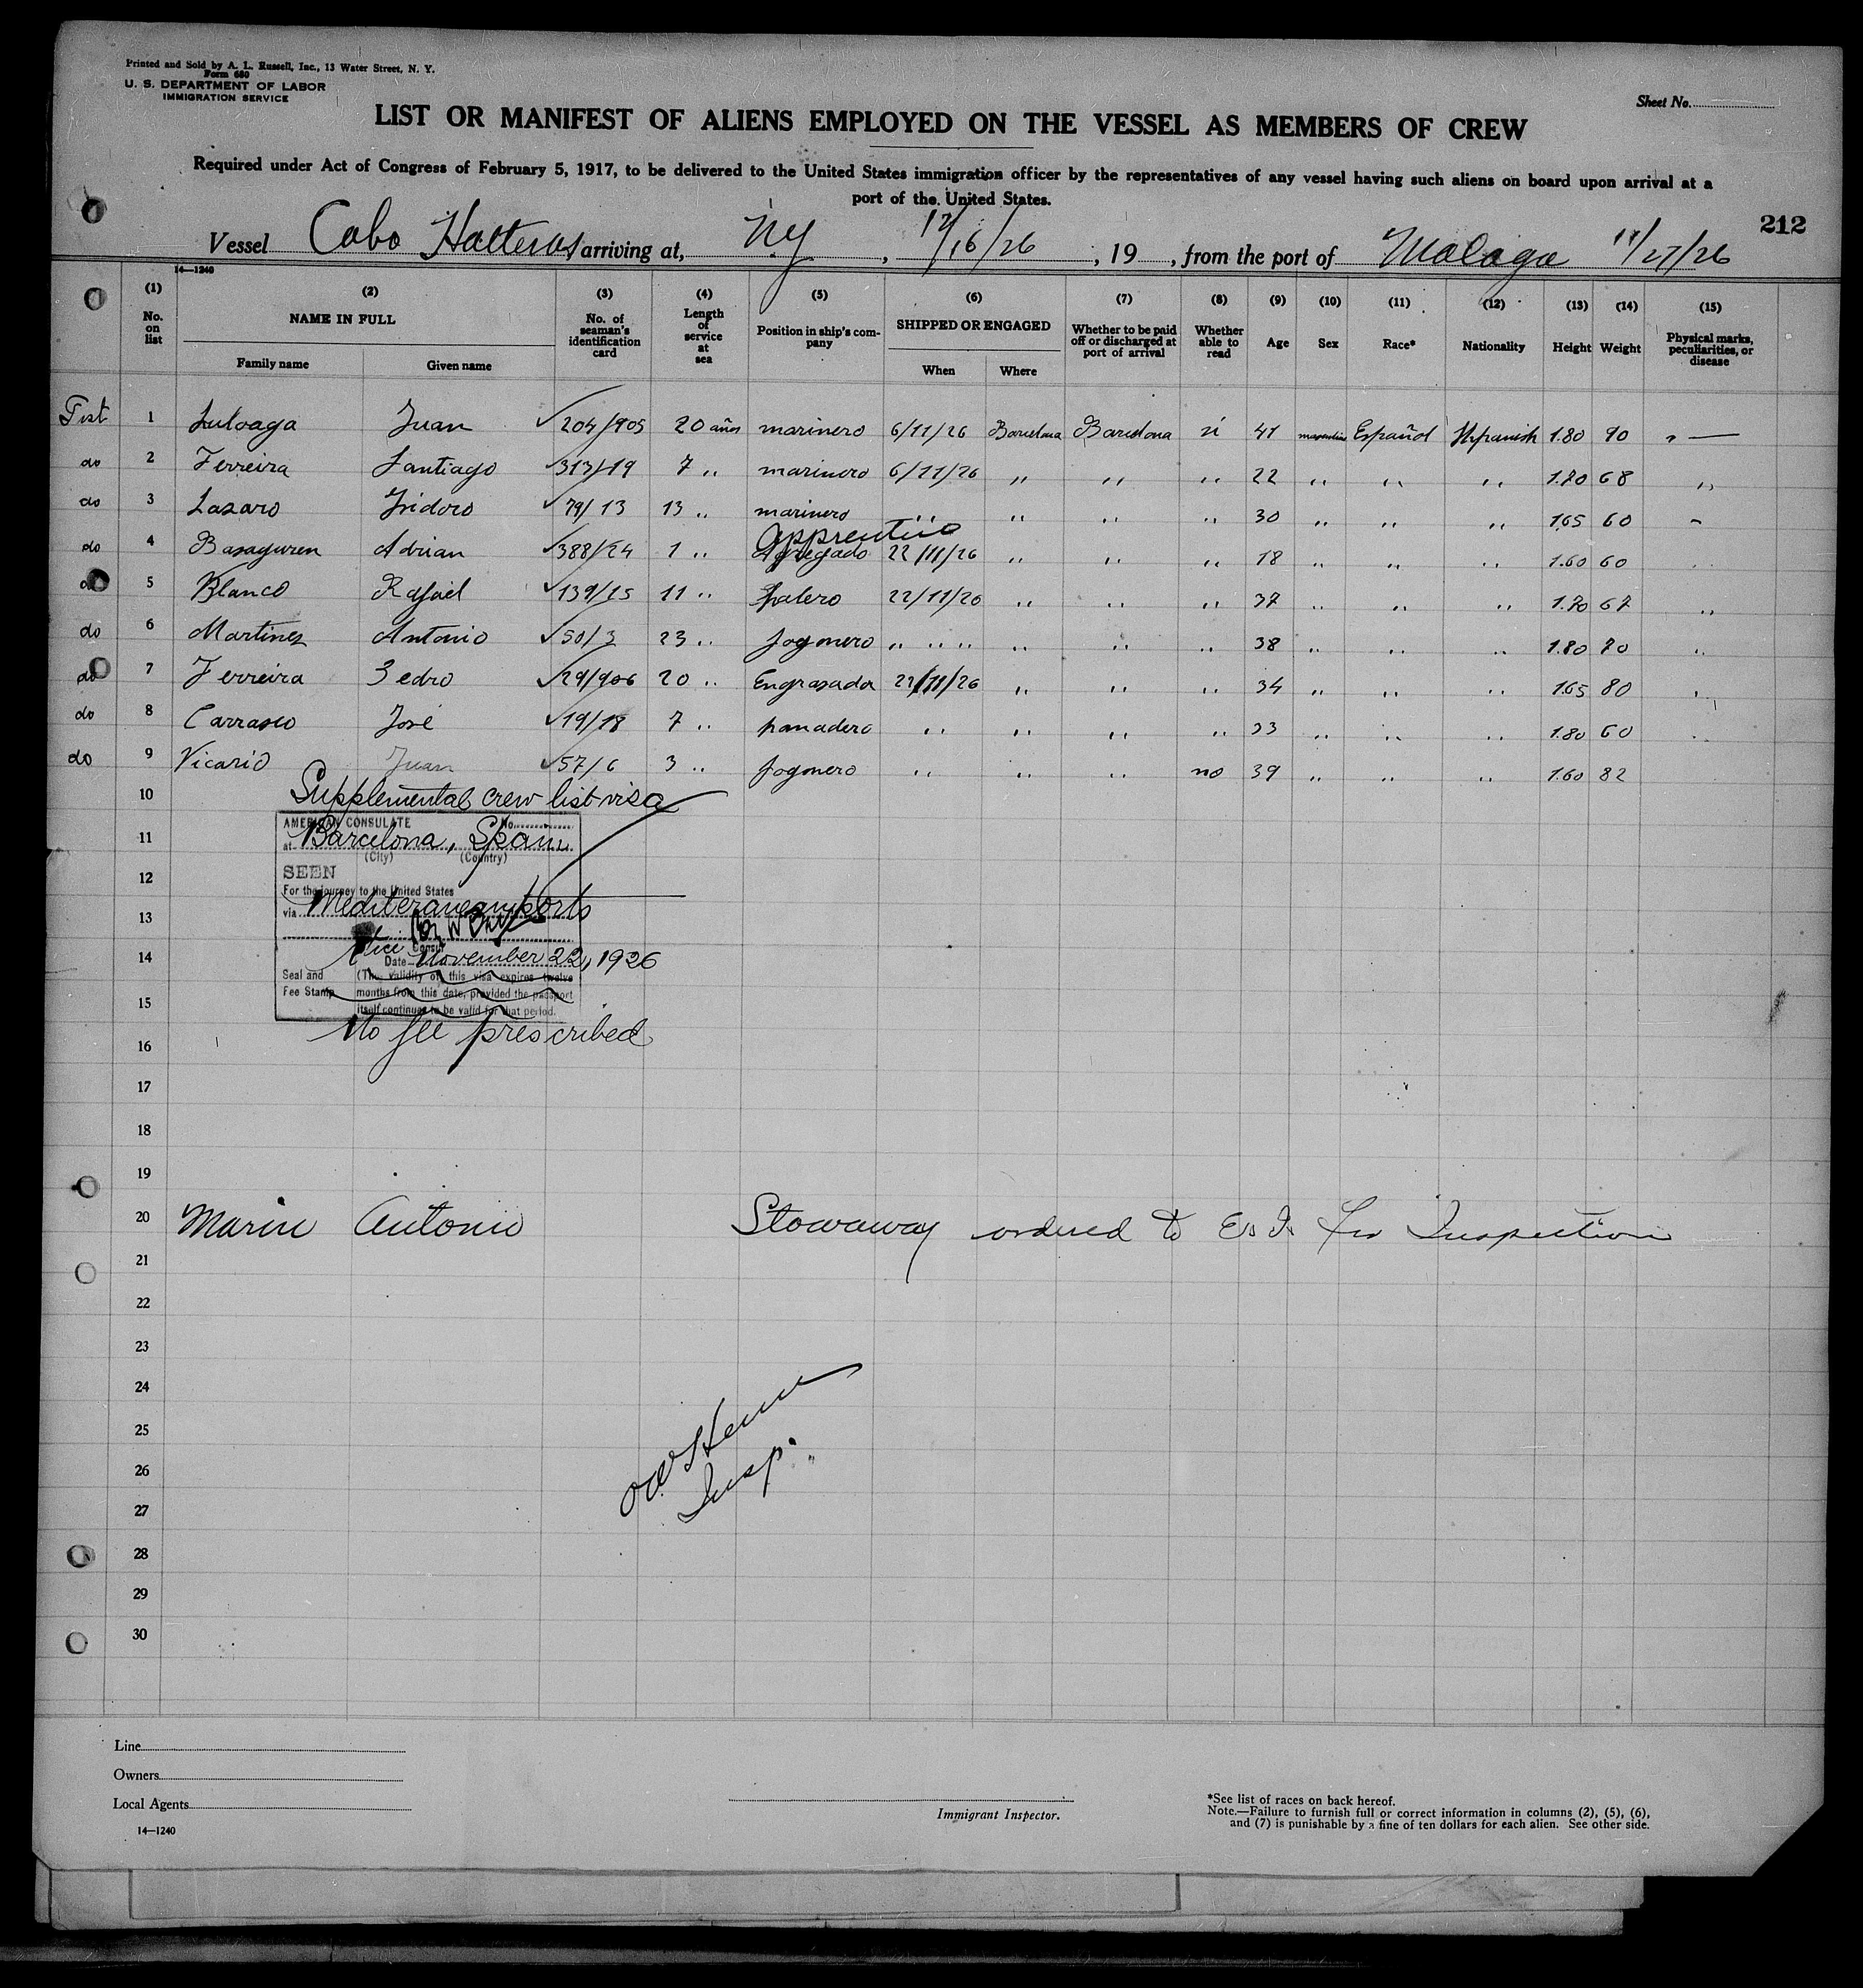 Printed and Sold by A. L. Russell, Inc., 13 Water Street, N. Y.
Form 680
U. S. DEPARTMENT OF LABOR
IMMIGRATION SERVICE
Sheet No.
LIST OR MANIFEST OF ALIENS EMPLOYED ON THE VESSEL AS MEMBERS OF CREW
Required under Act of Congress of February 5, 1917, to be delivered to the United States immigration officer by the representatives of any vessel having such aliens on board upon arrival at a
port of the United States.
212
Vessel Cabo Hatteras arriving at, NY, 12/16/26, 19 , from the port of Malaga 11/27/26
14—1240
(1) (2) (3) (4) (5) (6) (7) (8) (9) (10) (11) (12) (13) (14) (15)
No. on list NAME IN FULL Family name Given name No. of seaman's identification card Length of service at sea Position in ship's company SHIPPED OR ENGAGED When Where Whether to be paid off or discharged at port of arrival Whether able to read Age Sex Race* Nationality Height Weight Physical marks, peculiarities, or disease
1 Juan 204/905 20 años marinero 6/11/26 Barcelona Barcelona si 41 masculino Español Spanish 1.80 90 " —
do 2 Ferreira Santiago 313/19 7 " marinero 6/11/26 " " " 22 " " " 1.70 68 "
do 3 Lazaro Isidoro 79/13 13 " marinero " " " " 30 " " " 1.65 60
apprentice
do 4 Basaguren Adrian 388/24 1 " Agregado 22/11/26 " " " 18 " " " 1.60 60
do 5 Blanco Rafael 139/15 11 " palero 22/11/26 " " " 37 " " " 1.70 67 "
do 6 Martinez Antonio 50/3 23 " fogonero " " " " " " 38 " " " 1.80 70 "
do 7 Ferreira Pedro 29/906 20 " Engrasador 22/11/26 " " " 34 " " " 1.65 80 "
do 8 Carrasco José 19/18 7 " panadero " " " " 33 " " " 1.80 60
do 9 Vicario Juan 57/6 3 " fogonero " " " no 39 " " " 1.60 82
10 Supplemental crew list visa
AMERICAN CONSULATE No.
11 at Barcelona, Spain
(City) (Country)
SEEN
12 For the journey to the United States
13 via Mediterranean ports
Vice Consul
14 Date November 22, 1926
Seal and (The validity of this visa expires twelve
Fee Stamp months from this date, provided the passport
15 itself continues to be valid for that period.
16 No fee prescribed
17
18
19
20 Marin Antonio Stowaway ordered to E. I. for Inspection
21
22
23
24
25
26 Insp.
27
28
29
30
Line
Owners
Local Agents
14—1240
Immigrant Inspector.
*See list of races on back hereof.
Note.—Failure to furnish full or correct information in columns (2), (5), (6),
and (7) is punishable by a fine of ten dollars for each alien. See other side.